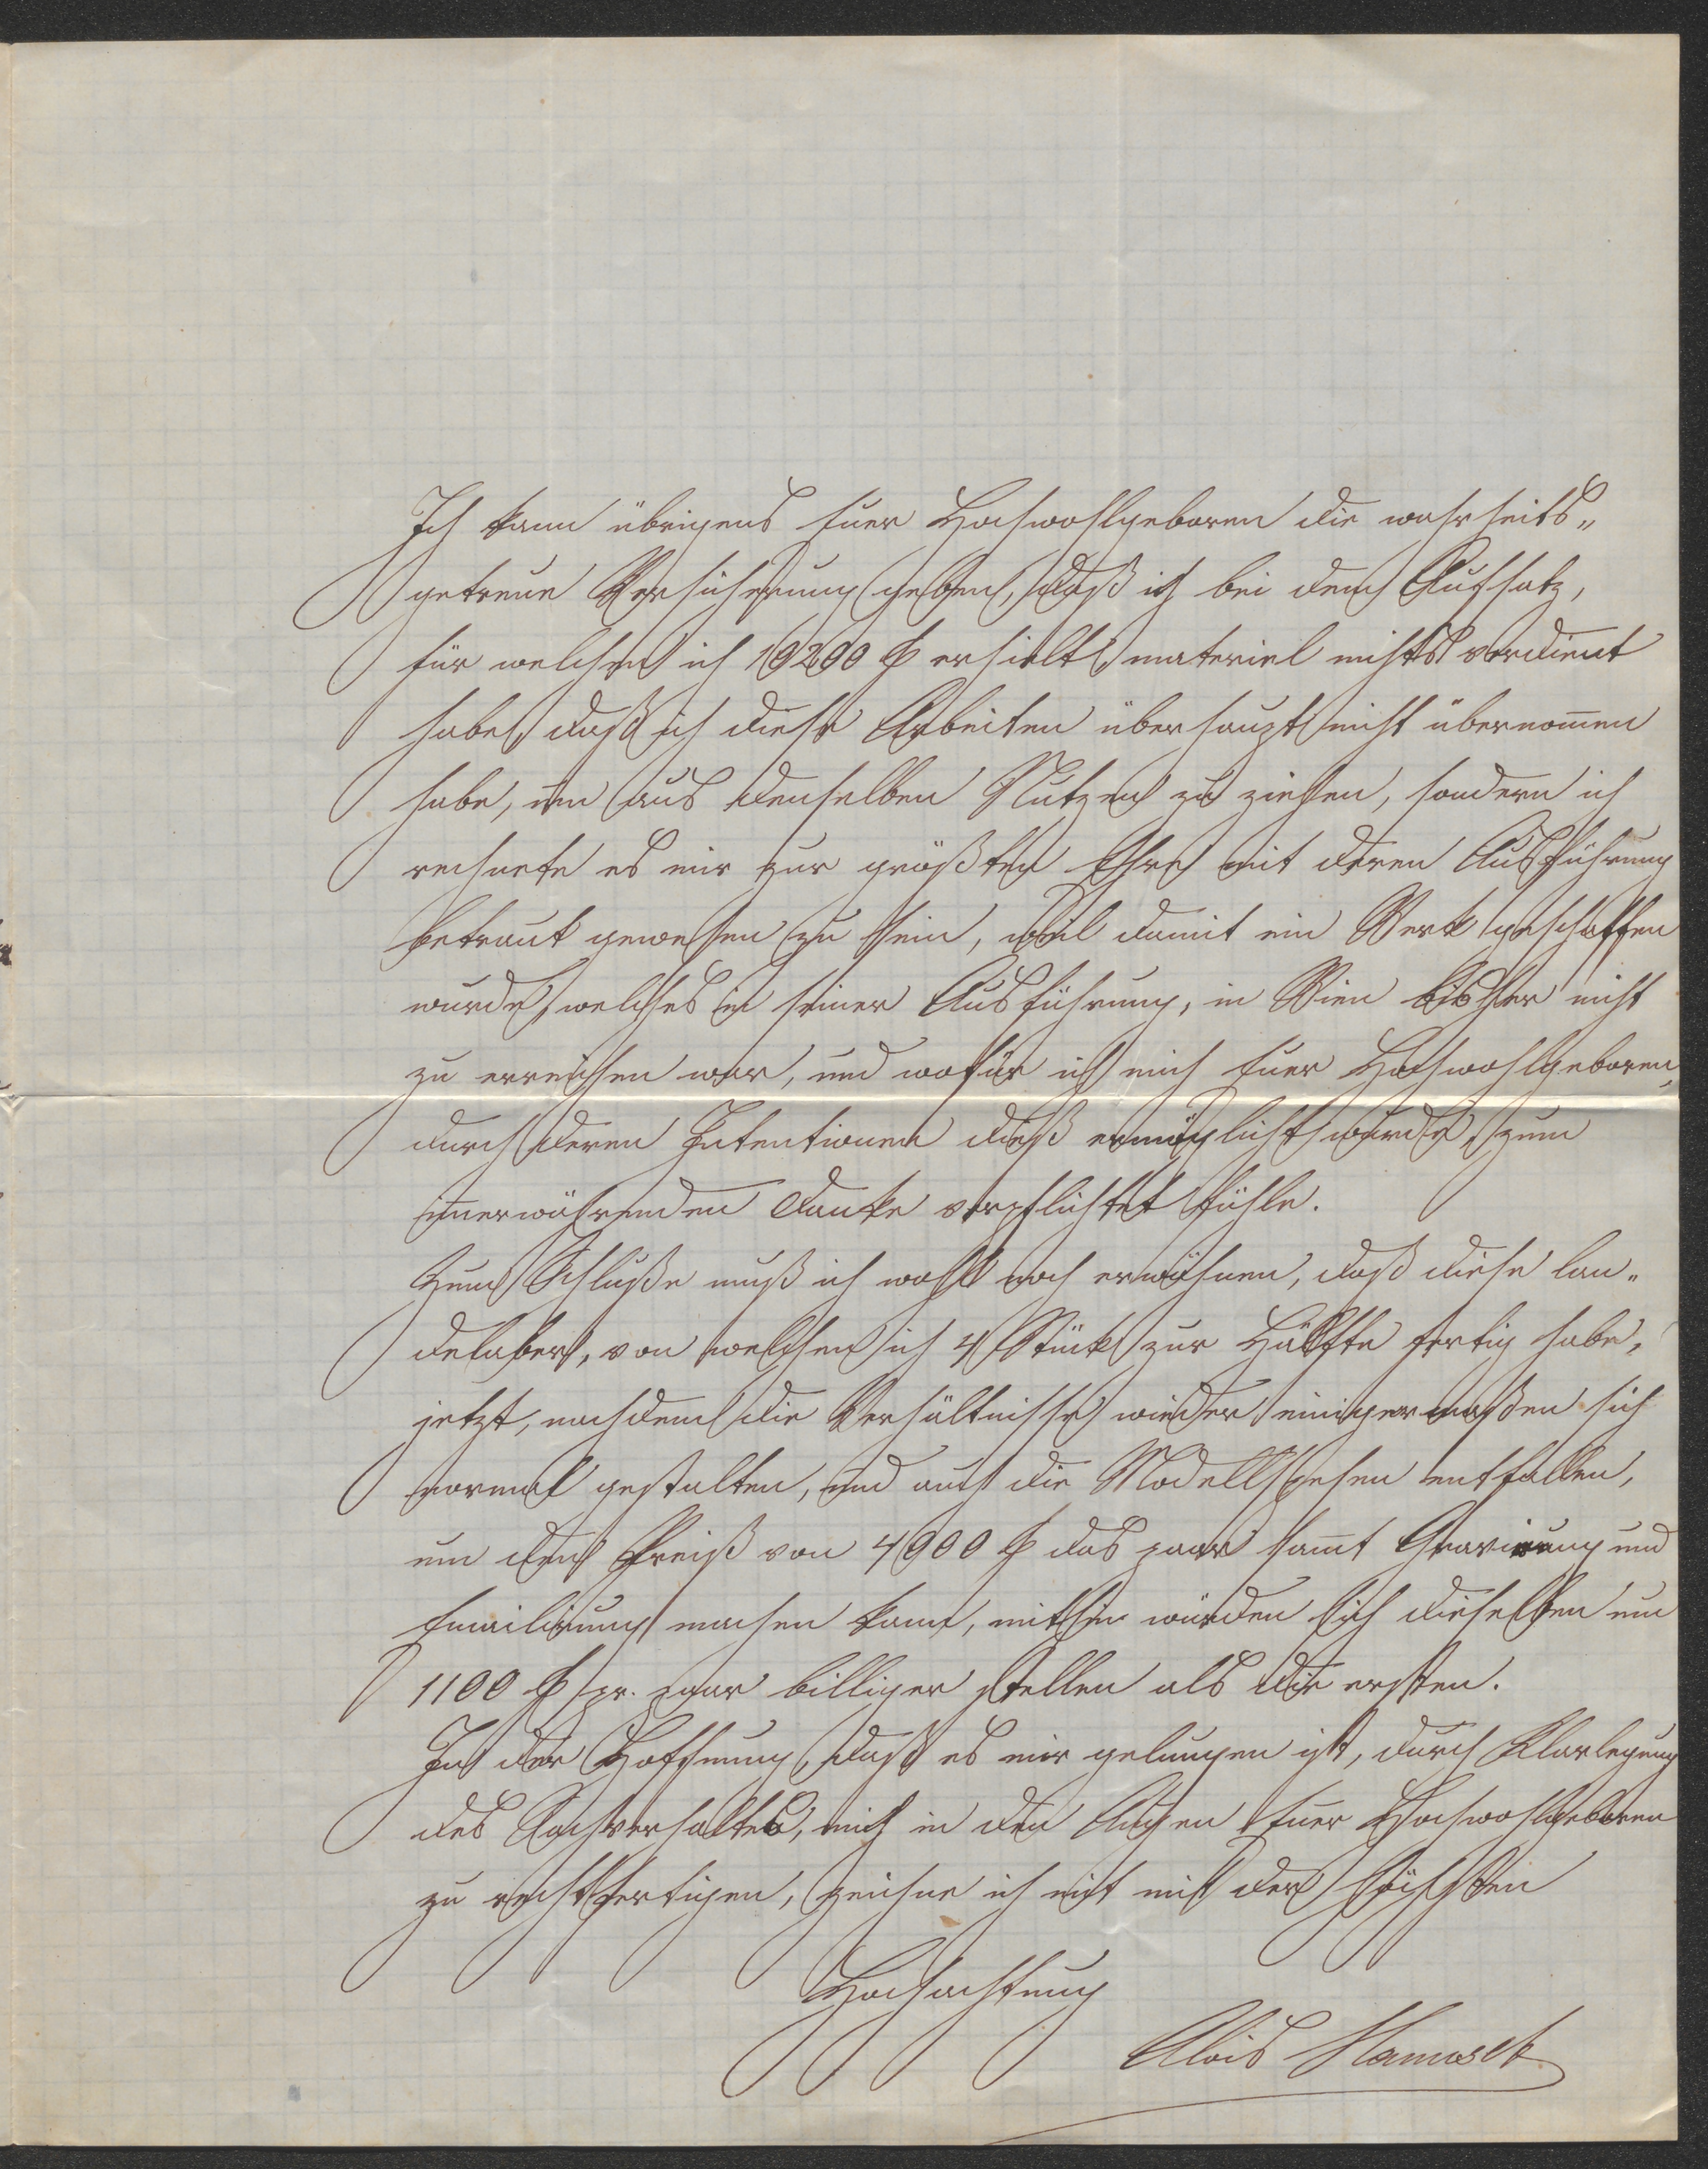 Ich kann übrigens Euer Hochwohlgeboren die wahrheits„
getreue Versicherung geben, daß ich bei dem Aufsatz,
für welchen ich 10200 f erhielt, materiel nichts verdient
habe, daß ich diese Arbeiten überhaupt nicht übernom̅en
habe, um aus denselben Nutzen zu ziehen, sondern ich
rechnete es mir zur größten Ehre mit deren Ausführung
betraut gewesen zu sein, weil damit ein Werk geschaffen
wurde, welches in seiner Ausführung, in Wien bisher nicht
zu erreichen war, und wofür ich mich Euer Hochwohlgeboren,
durch deren Intentionen dieß ermöglicht wurde, zum
im̅erwährenden Danke verpflichtet fühle.
Zum Schluße muß ich wohl noch erwähnen, daß diese Can„
delaber, von welchen ich 4 Stück zur Hälfte fertig habe,
jetzt, nachdem die Verhältnisse wieder einigermaßen sich
normal gestalten, und auch die Modellspesen entfallen,
um den Preiß von 4900 f das paar sam̅t Gravirung und
Emailirung machen kann, mithin würden sich dieselben um
1100 f pr. paar billiger stellen als die ersten.
In der Hoffnung, daß es mir gelungen ist, durch Klarlegung
des Sachverhaltes, mich in den Augen Euer Hochwohlgeboren
zu rechtfertigen, zeichne ich mit der höchsten
Hochachtung
Alois